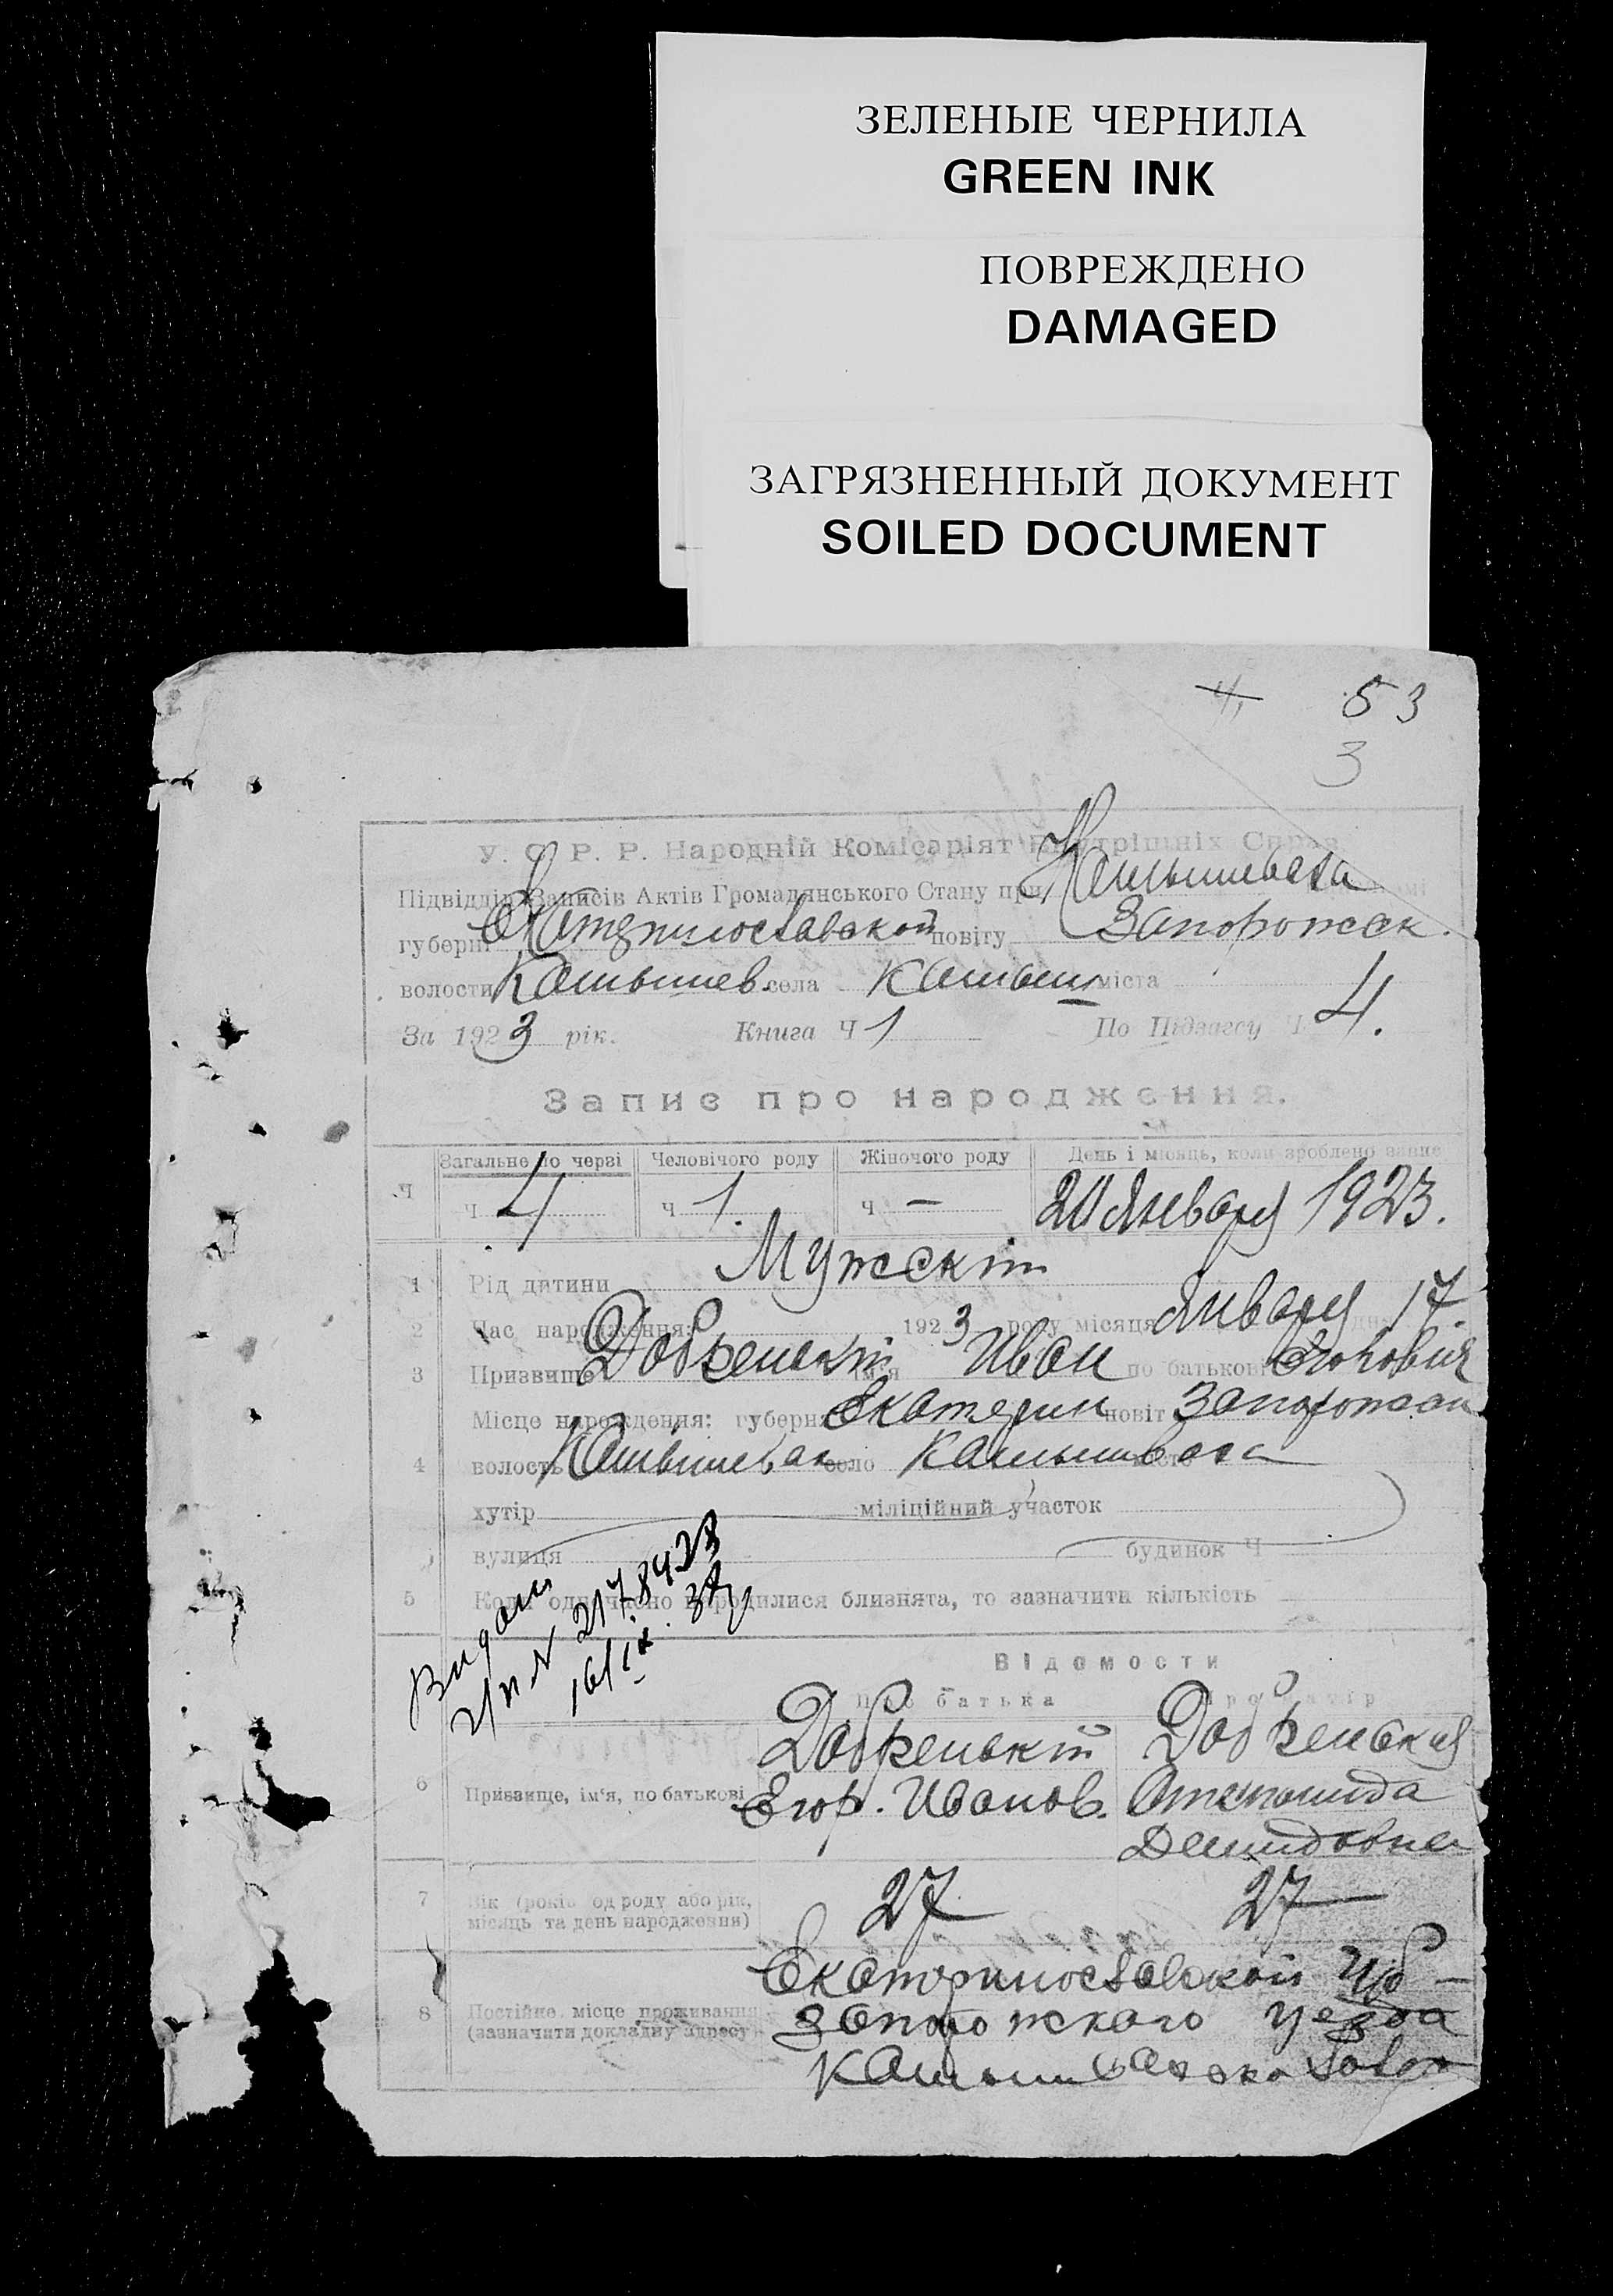 ЗЕЛЕНЫЕ ЧЕРНИЛА
GREEN INK
ПОВРЕЖДЕНО
DAMAGED
ЗАГРЯЗНЕННЫЙ ДОКУМЕНТ
SOILED DOCUMENT
4, 53
3
У. С. Р. Р. Народній Комісаріят Внутрішніх Справ
Підвідділ Записів Актів Громадянського Стану при Камышеваха
губерні Екатериносlавской повіту Запорожск.
волости Камышев. села Камыш міста
За 1923 рік. Книга Ч 1 По Підзагсу Ч 4.
Запис про народження.
Загальне по черзі Человічого роду Жіночого роду День і місяць, коли зроблено запис
Ч ч 4 ч 1. ч — 20 Января 1923.
1 Рід дитини Мужскій
2 Час народження: 1923 року місяця Января 17
3 Призвище Добренькій ім'я Иван по батькові Егорович
Місце народження: губерня Екатерин повіт Запорожск
4 волость Камышевах село Камышеваха місто
хутір міліційний участок
вулиця будинок Ч
5 Коли одночасно народилися близнята, то зазначити кількість
Відомости
Про батька Про матір
Добренькій Добренькая
6 Призвище, ім'я, по батькові Егор. Иванов.
Демидовна
7 Вік (років од роду або рік, 27 27
місяць та день народження)
Екатериносlавской губ—
8 Постійне місце проживання Запорожского уезда
(зазначити докладну адресу)